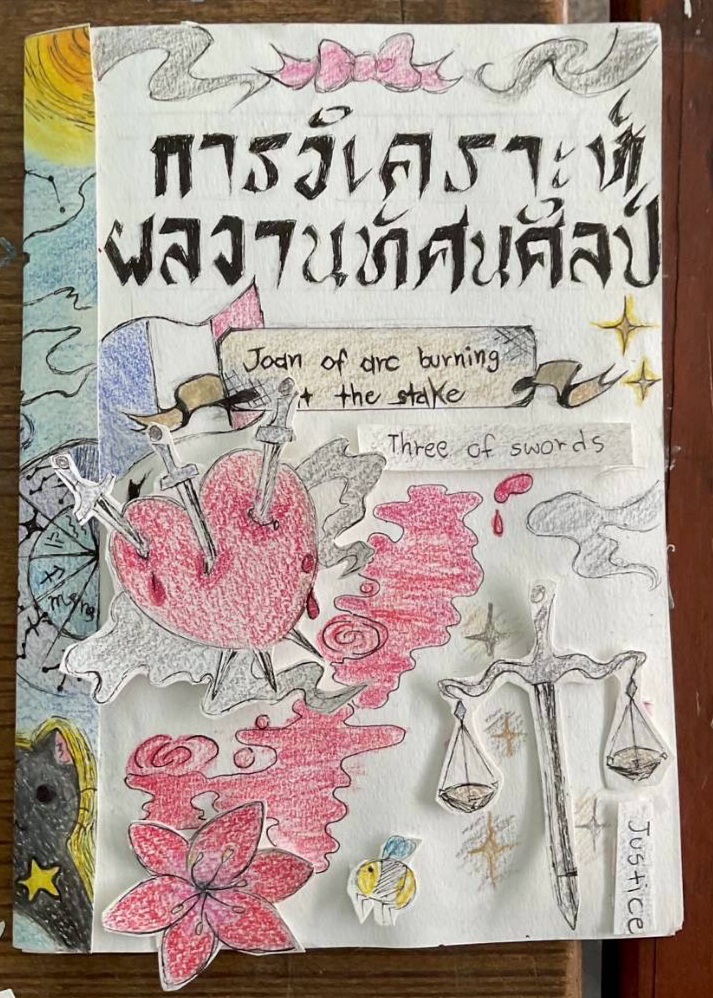 การวิเคราะห์
ผลงานทัศนศิลป์
Joan of arc burning
at the stake
Three of swords
Justice